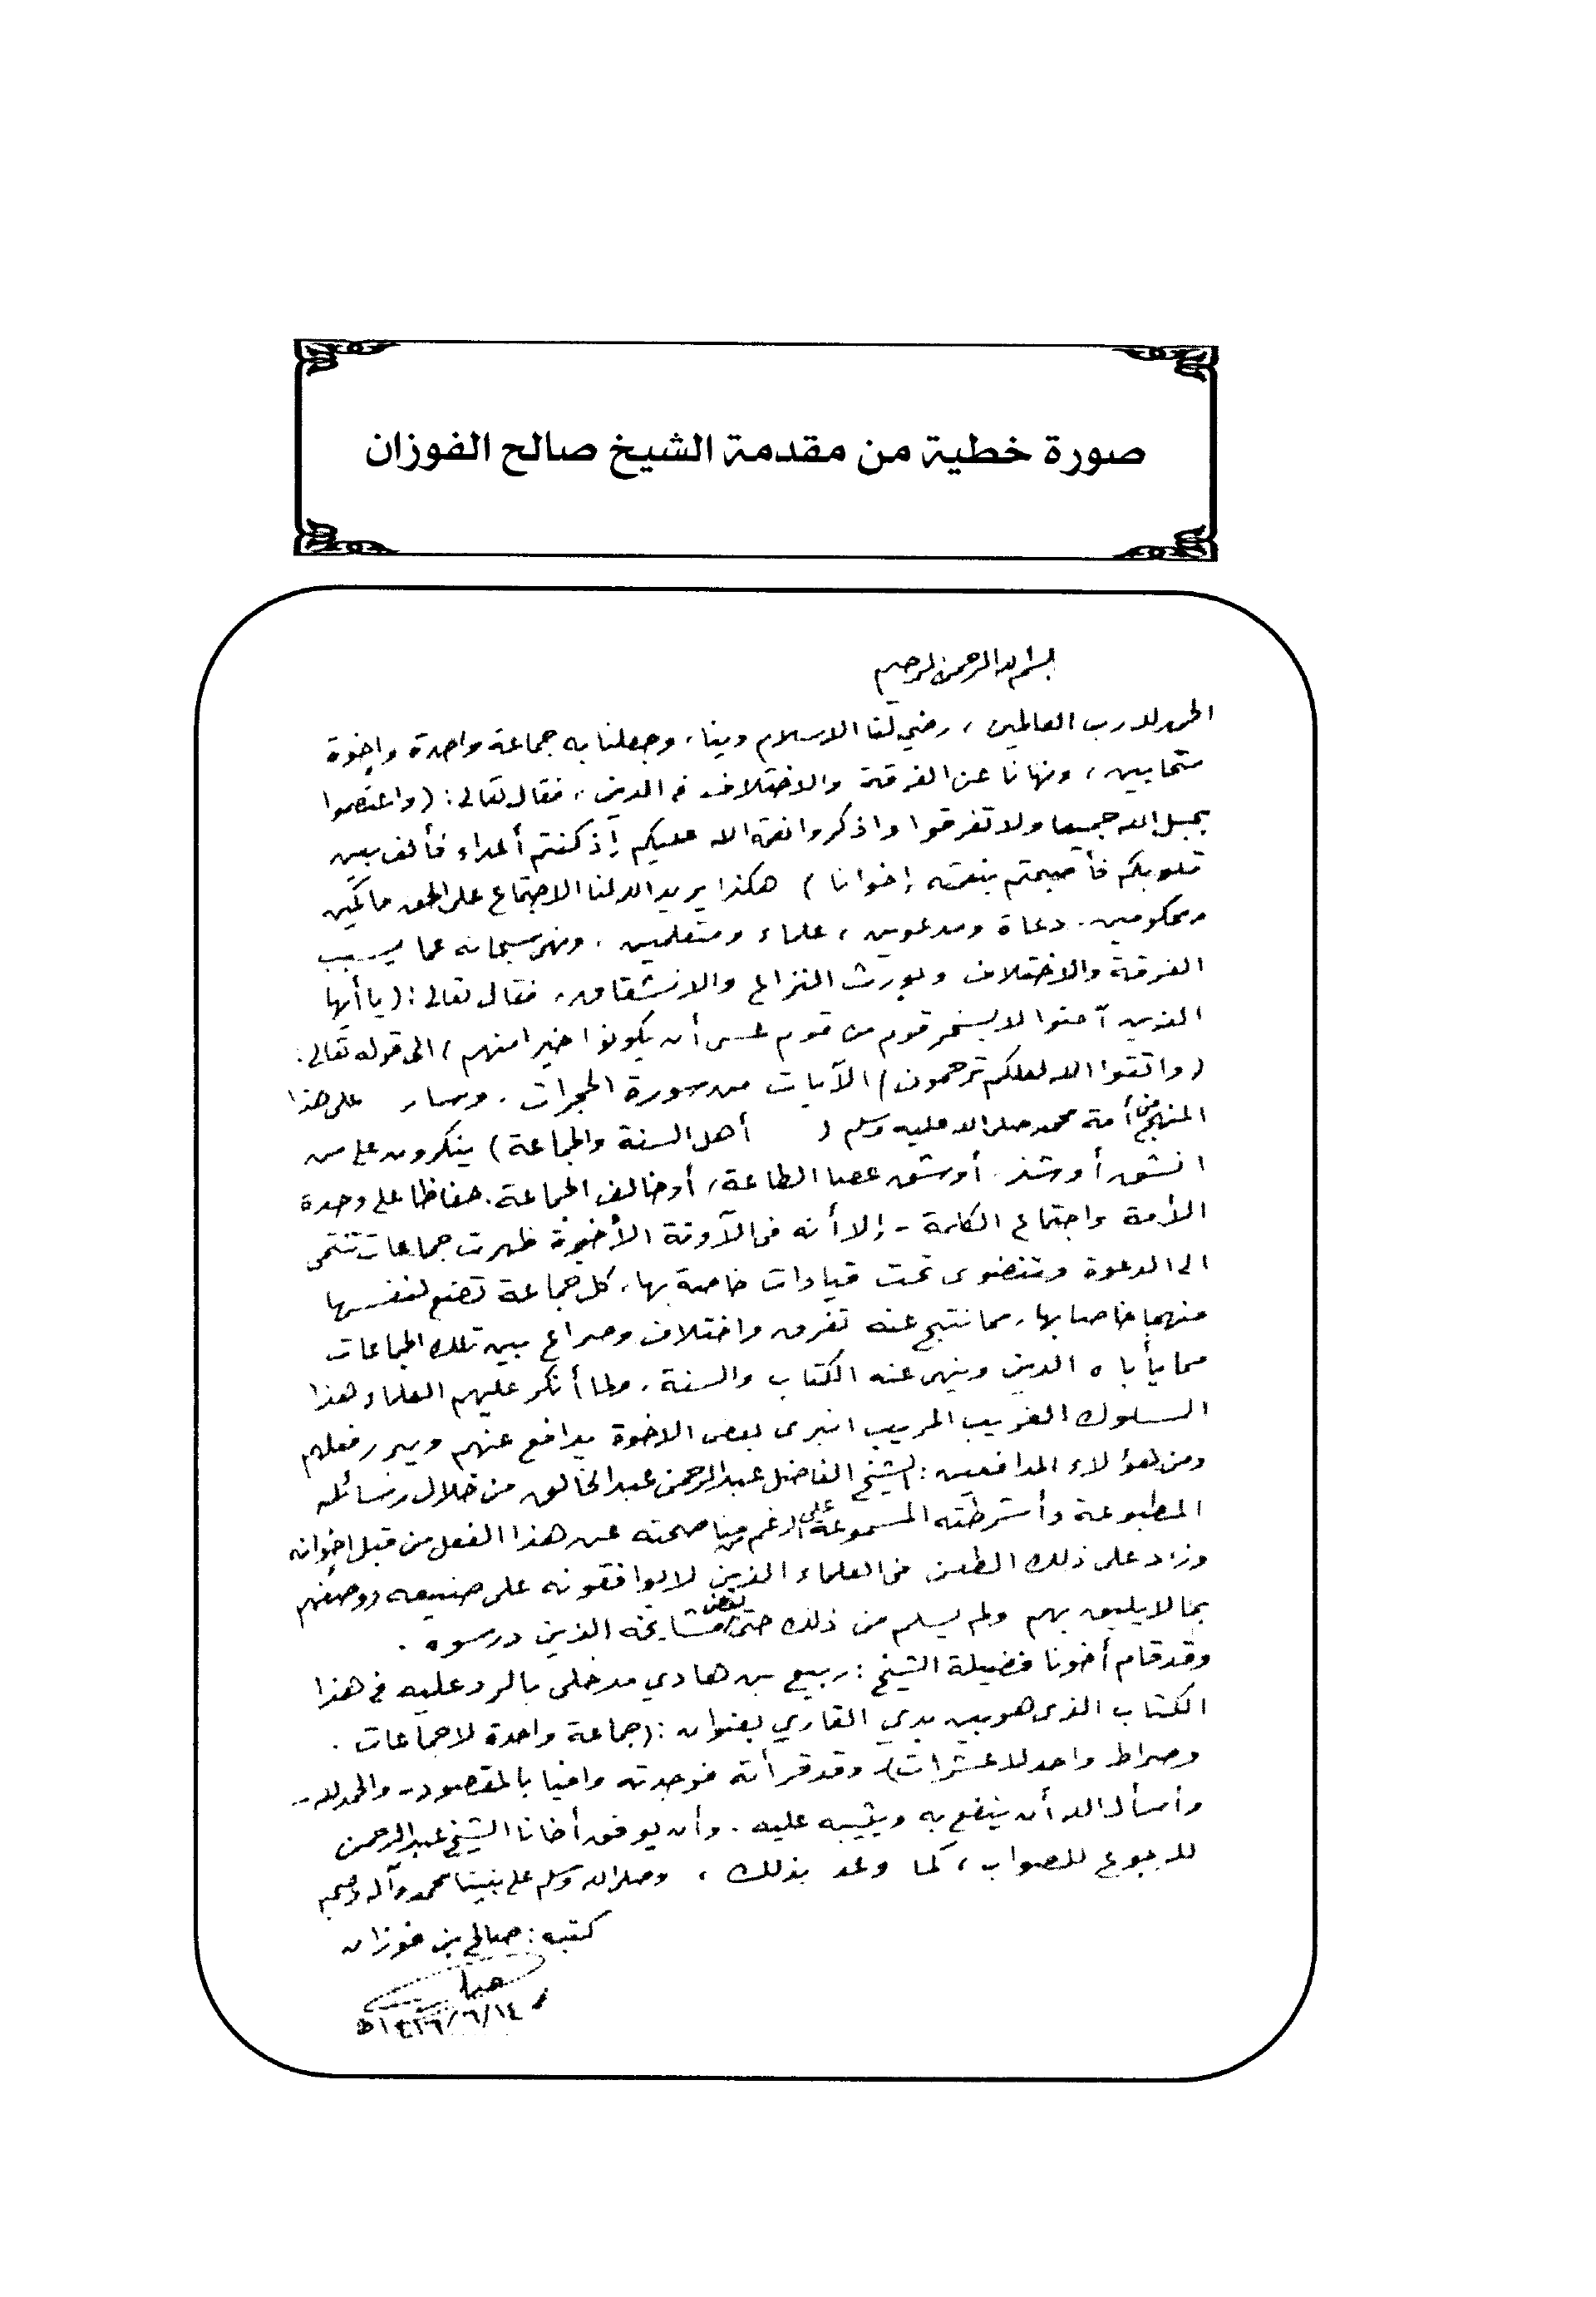 صورة خطية من مقدمة الشيخ صالح الفوزان
بسم الله الرحمن الرحيم
الحمد لله رب العالمين، رضي لنا الاسلام دينا، وجعلنا به جماعة واحدة وإخوة
متحابين، ونهانا عن الفرقة والاختلاف في الدين، فقال تعالى: (واعتصموا
بحبل الله جميعا ولا تفرقوا واذكروا نعمة الله عليكم إذ كنتم أعداء فألف بين
قلوبكم فأصبحتم بنعمته إخوانا) هكذا يريد الله لنا الاجتماع على الحق حاكمين
ومحكومين. دعاة ومدعوين، علماء ومتعلمين. ونهى سبحانه عما يسبب
الفرقة والاختلاف ويورث النزاع والانشقاق، فقال تعالى: (يا أيها
الذين آمنوا لا يسخر قوم من قوم عسى أن يكونوا خيرا منهم) الى قوله تعالى:
(واتقوا الله لعلكم ترحمون) الآيات من سورة الحجرات. وسار على هذا
المنهج من أمة محمد صلى الله عليه وسلم (أهل السنة والجماعة) ينكرون على من
انشق أو شذ. أو شق عصا الطاعة، أو خالف الجماعة. حفاظا على وحدة
الأمة واجتماع الكلمة - إلا أنه في الآونة الأخيرة ظهرت جماعات تنتمى
الى الدعوة وتنضوى تحت قيادات خاصة بها، كل جماعة تضع لنفسها
منهجا خاصا بها، مما نتج عنه تفرق واختلاف وصراع بين تلك الجماعات
مما يأباه الدين وينهى عنه الكتاب والسنة. ولما أنكر عليهم العلماء هذا
السلوك الغريب المريب انبرى بعض الاخوة يدافع عنهم ويبرر فعلهم
ومن هؤلاء المدافعين: الشيخ الفاضل عبدالرحمن عبدالخالق من خلال رسائله
المطبوعة وأشرطته المسموعة على الرغم من مناصحته عن هذا الفعل من قبل اخوانه
وزاد على ذلك الطعن في العلماء الذين لا يوافقونه على صنيعه ووصفهم
بما لا يليق بهم ولم يسلم من ذلك حتى بعض مشايخه الذين درسوه.
وقد قام أخونا فضيلة الشيخ: ربيع بن هادي مدخلى بالرد عليه في هذا
الكتاب الذى هو بين يدي القاري بعنوان: (جماعة واحدة لا جماعات.
وصراط واحد لا عشرات). وقد قرأته فوجدته وافيا بالمقصود - والحمد لله -
وأسأل الله أن ينفع به ويثيبه عليه. وأن يوفق أخانا الشيخ عبدالرحمن
للرجوع للصواب، كما وعد بذلك، وصلى الله وسلم على نبينا محمد وآله وصحبه
كتبه: صالح بن فوزان
١٤/٦/١٤١٦هـ